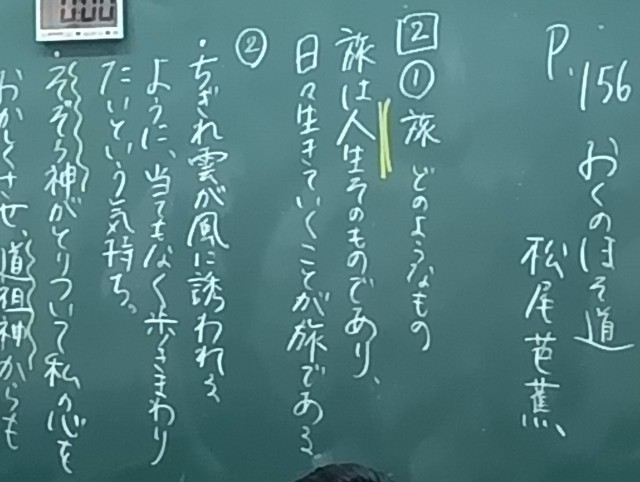 P.156 おくのほそ道
松尾芭蕉
2 ① 旅 どのようなもの
旅は人生そのものであり、
日々生きていくことが旅である
②
・ちぎれ雲が風に誘われる
ように、当てもなく歩きまわり
たいという気持ち。
・そぞろ神がとりついて私の心を
おかしくさせ、道祖神からも